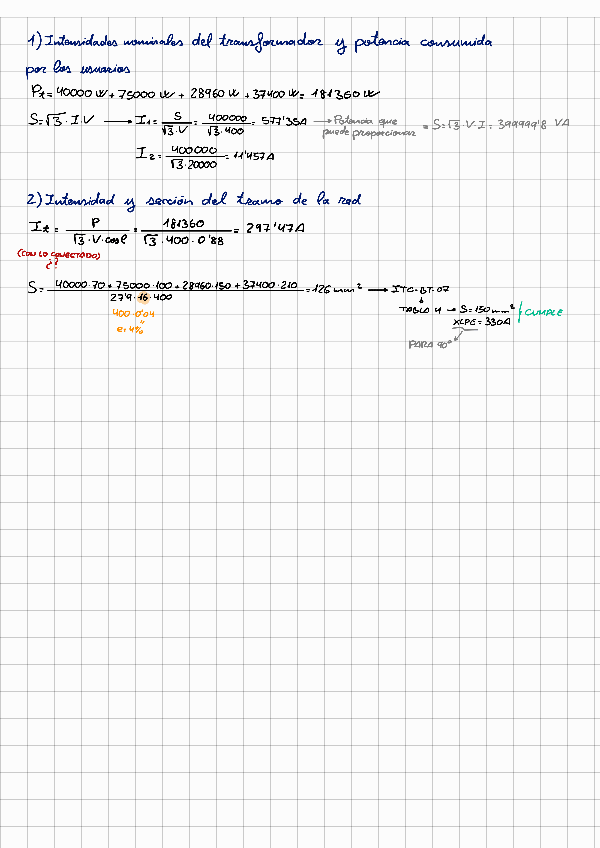 1) Intensidades nominales del transformador y potencia consumida
por los usuarios
Pt = 40000 W + 75000 W + 28960 W + 37400 W = 181360 W
S = √3 · I · V → I1 = S / √3 · V = 400000 / √3 · 400 = 577'35A → Potencia que puede proporcionar = S = √3 · V · I = 399999'8 VA
I2 = 400000 / √3 · 20000 = 11'457A
2) Intensidad y sección del tramo de la red
It = P / √3 · V · cosφ = 181360 / √3 · 400 · 0'88 = 297'47A
(CON LO CONECTADO)
¿?
S = 40000·70 + 75000·100 + 28960·150 + 37400·210 / 27'9 · 16 · 400 = 126 mm² → ITC-BT-07
400·0'04
"
e=4%
TABLA 4 → S = 150 mm²
XLPE = 330A
CUMPLE
PARA 90°